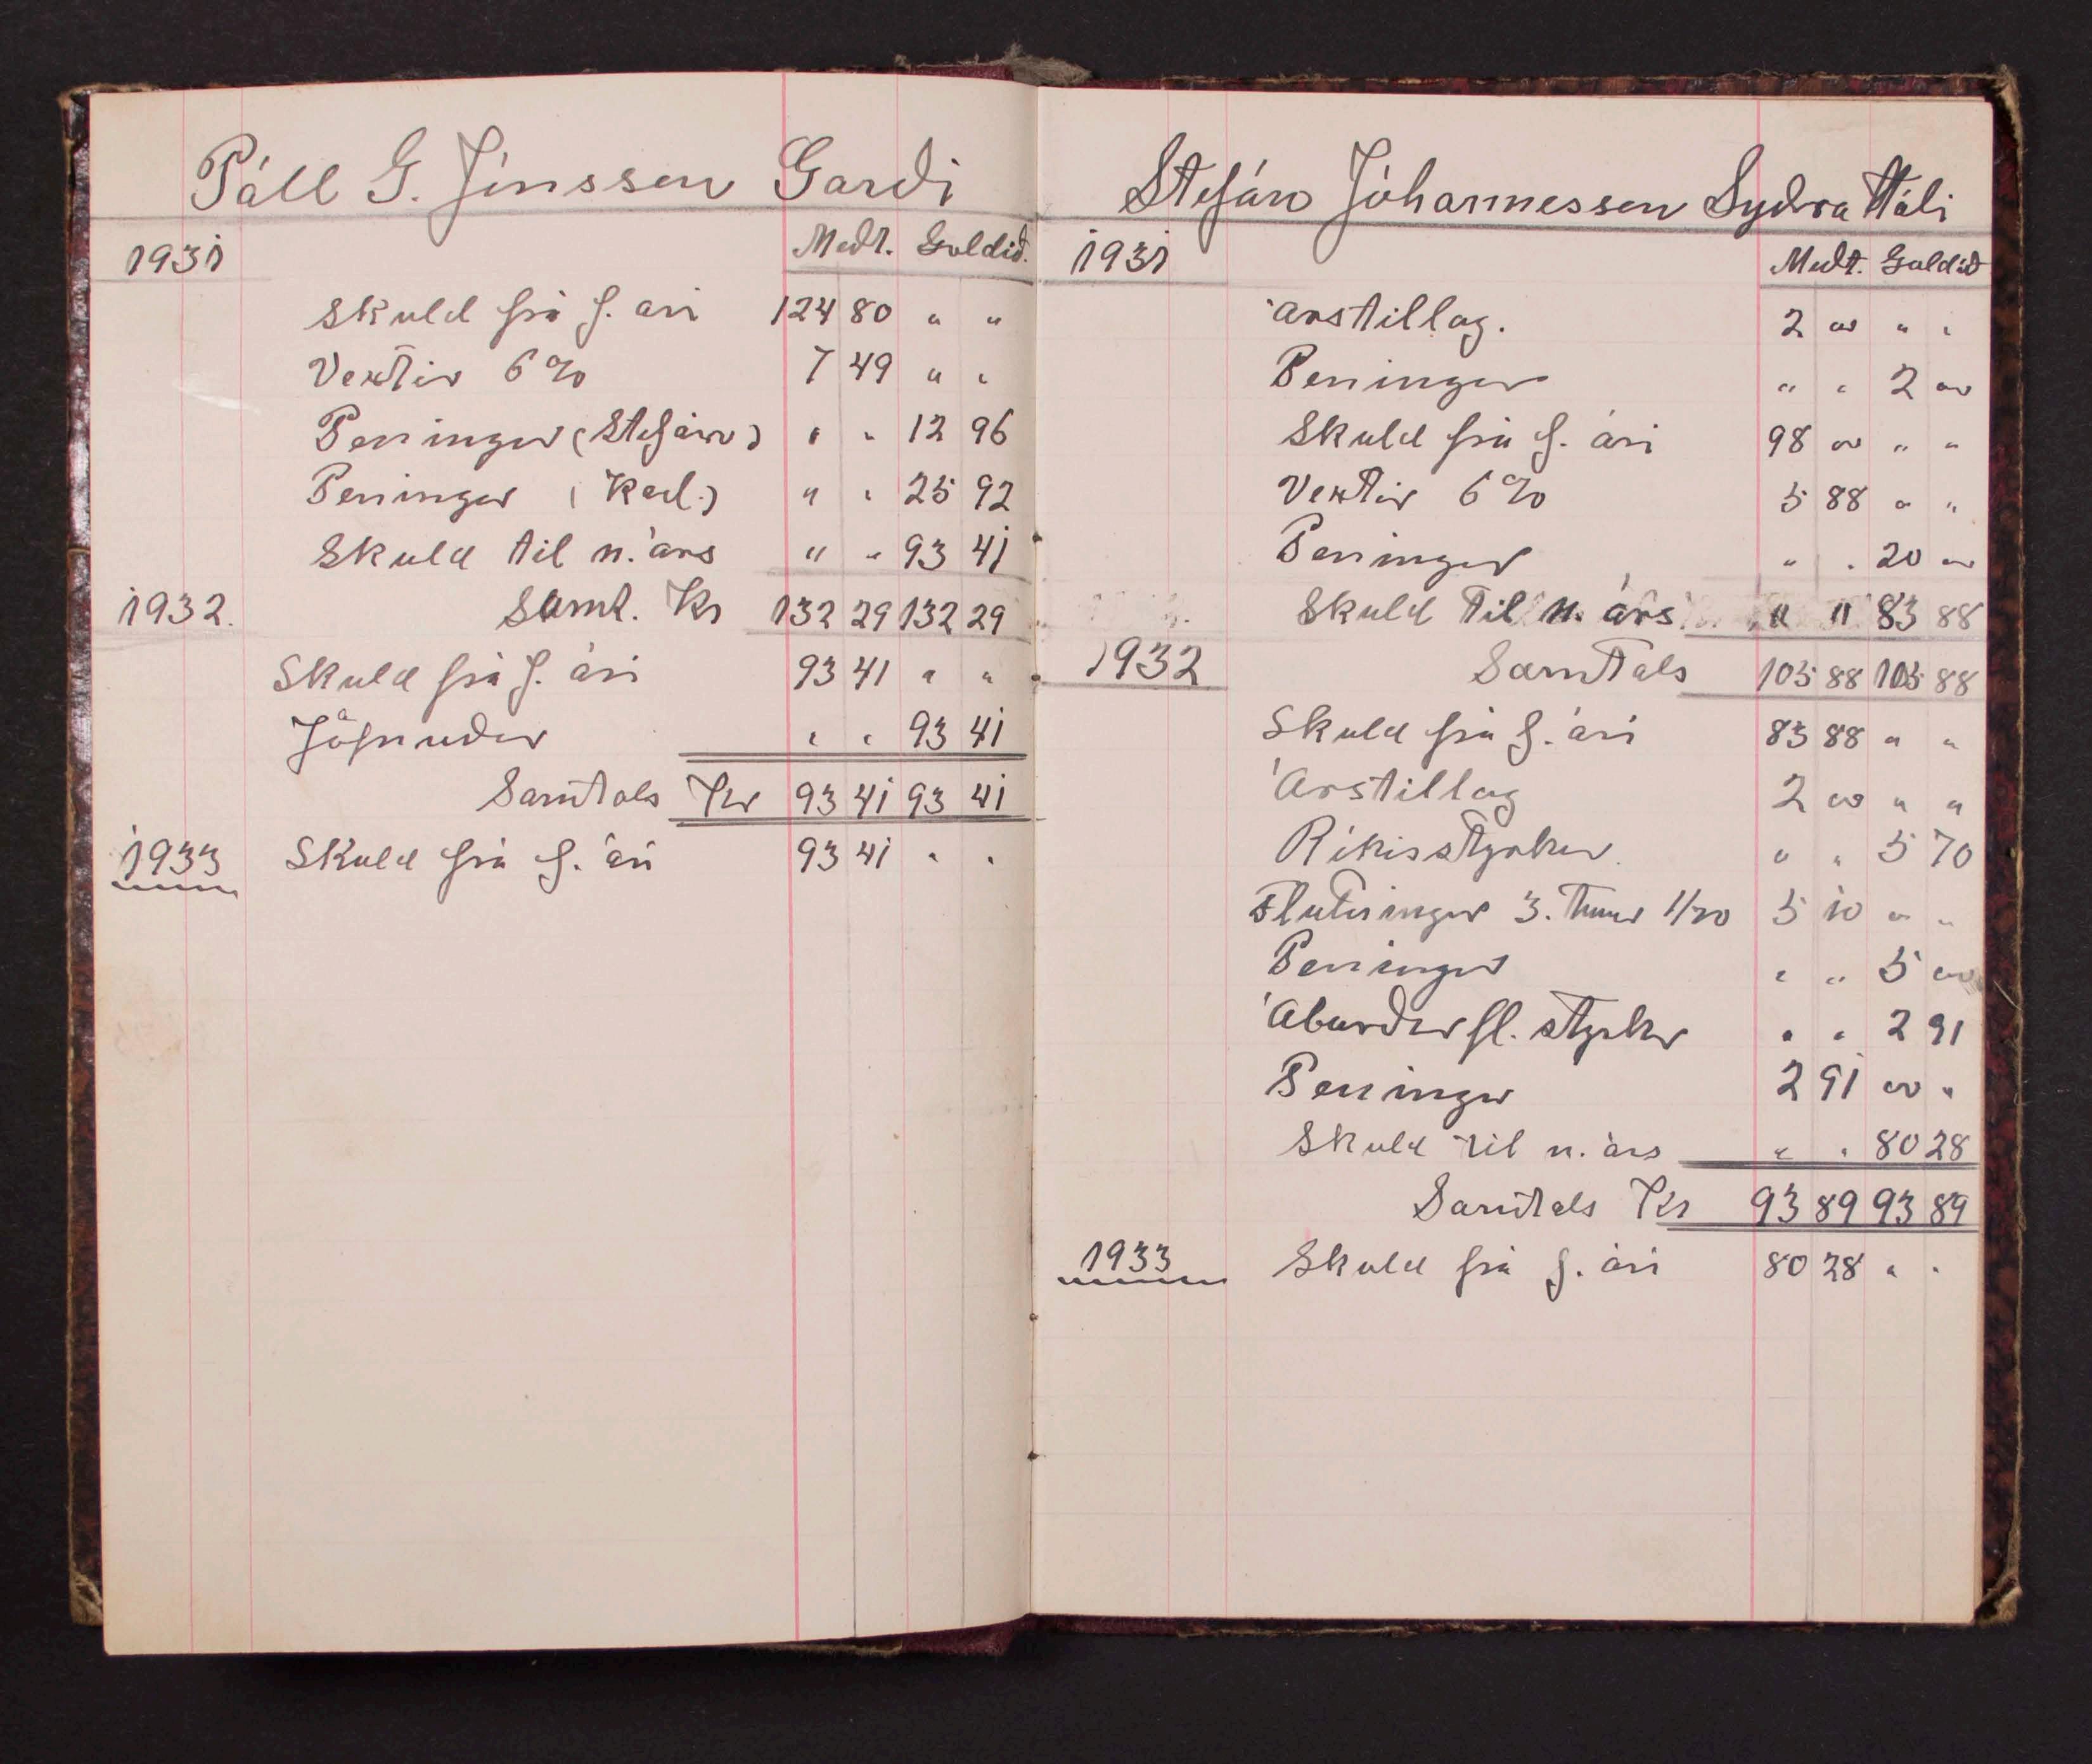 Páll G. Jónsson Gardi
1931 Medt. Goldið.
Skuld frá f. ári 124 80 " "
Vextir 6% 7 49 " "
Peningar (Stefáni) " " 12 96
Peningar (Karl.) " " 25 92
Skuld til n. árs " " 93 41
1932. Samt. Kr 132 29 132 29
Skuld frá f. ári 93 41 " "
Jöfnuður " " 93 41
Samtals Kr 93 41 93 41
1933 Skuld frá f. ári 93 41 " "
Stefán Jóhannesson Sydra Háli
1931 Medt. Goldið
Arstillag. 2 00 " "
Peningar " " 2 00
Skuld frá f. ári 98 00 " "
Vextir 6% 5 88 " "
Peningar " " 20 00
Skuld til n. árs " " 83 88
1932 Samtals 105 88 105 88
Skuld frá f. ári 83 88 " "
Árstillag 2 00 " "
Ríkisstyrkur " " 5 70
Flutningur 3. 1/20 5 10 " "
Peningar " " 5 00
Áburdar fl. styrkur " " 2 91
Peningar 2 91 00 "
Skuld til n. árs " " 80 28
Samtals Kr 93 89 93 89
1933 Skuld frá f. ári 80 28 " "